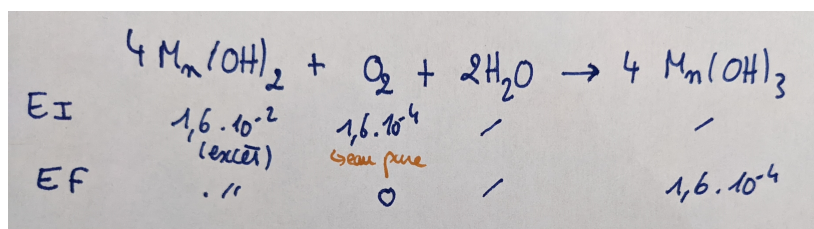 4 Mn(OH)₂ + O₂ + 2H₂O → 4 Mn(OH)₃
EI 1,6.10⁻² 1,6.10⁻⁴ / /
(excès) ↳eau pure
EF .// 0 / 1,6.10⁻⁴